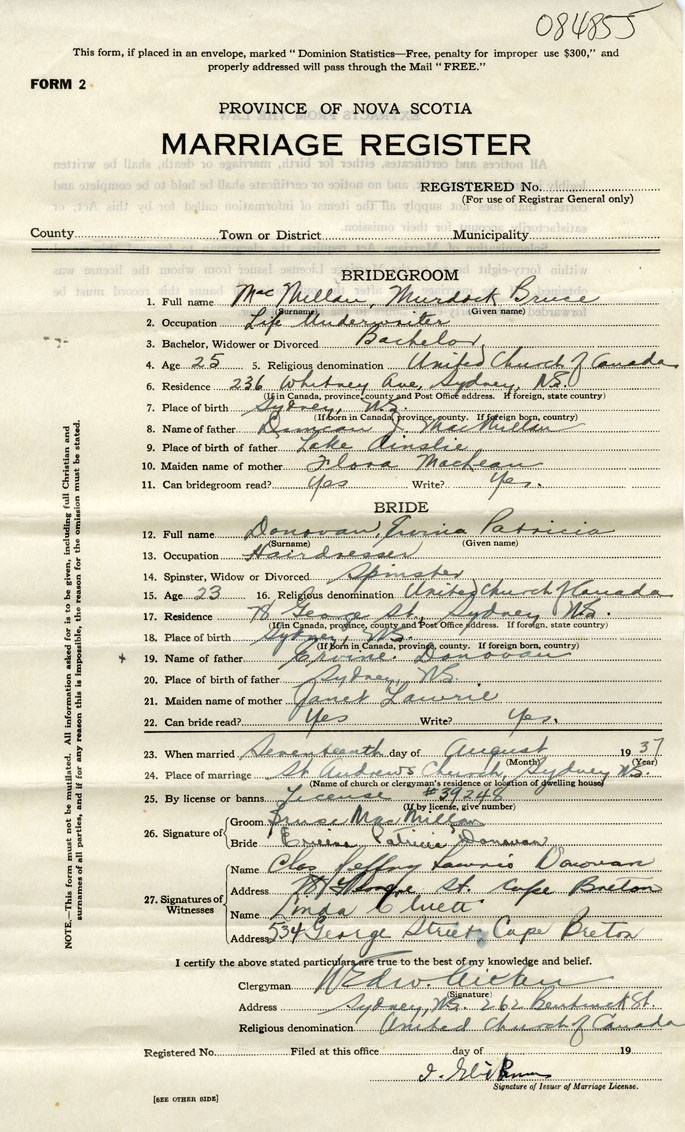 084855
This form, if placed in an envelope, marked “ Dominion Statistics—Free, penalty for improper use $300,” and
properly addressed will pass through the Mail “ FREE.”
FORM 2
PROVINCE OF NOVA SCOTIA
MARRIAGE REGISTER
REGISTERED No.
(For use of Registrar General only)
County Town or District Municipality
BRIDEGROOM
1. Full name MacMillan, Murdock Bruce
(Surname) (Given name)
2. Occupation Life Underwriter
3. Bachelor, Widower or Divorced Bachelor
4. Age 25 5. Religious denomination United Church of Canada
6. Residence 236 Whitney Ave, Sydney, N.S.
(If in Canada, province, county and Post Office address. If foreign, state country)
7. Place of birth Sydney, N.S.
(If born in Canada, province, county. If foreign born, country)
8. Name of father Duncan J. MacMillan
9. Place of birth of father Lake Ainslie
10. Maiden name of mother Flora MacLean
11. Can bridegroom read? Yes Write? Yes.
BRIDE
12. Full name Donovan, Irvina Patricia
(Surname) (Given name)
13. Occupation Hairdresser
14. Spinster, Widow or Divorced Spinster
15. Age 23 16. Religious denomination United Church of Canada
17. Residence 78 George St., Sydney N.S.
(If in Canada, province, county and Post Office address. If foreign, state country)
18. Place of birth Sydney, N.S.
(If born in Canada, province, county. If foreign born, country)
19. Name of father Ervine Donovan
20. Place of birth of father Sydney, N.S.
21. Maiden name of mother Janet Lawrie
22. Can bride read? Yes Write? Yes.
23. When married Seventeenth day of August 1937
(Month) (Year)
24. Place of marriage St Andrews Church, Sydney N.S.
(Name of church or clergyman's residence or location of dwelling house)
25. By license or banns License #39248
(If by license, give number)
26. Signature of
Groom Bruce MacMillan
Bride Patricia Donovan
27. Signatures of Witnesses
Name Chas Jeffrey Lawrie Donovan
Address St. Cape Breton
Name Linda
Address 534 George Street, Cape Breton
I certify the above stated particulars are true to the best of my knowledge and belief.
Clergyman
(Signature)
Address Sydney, N.S. 262 Bentinck St.
Religious denomination United Church of Canada
Registered No. Filed at this office day of 19
Signature of Issuer of Marriage License.
[SEE OTHER SIDE]
NOTE.—This form must not be mutilated. All information asked for is to be given, including full Christian and
surnames of all parties, and if for any reason this is impossible, the reason for the omission must be stated.